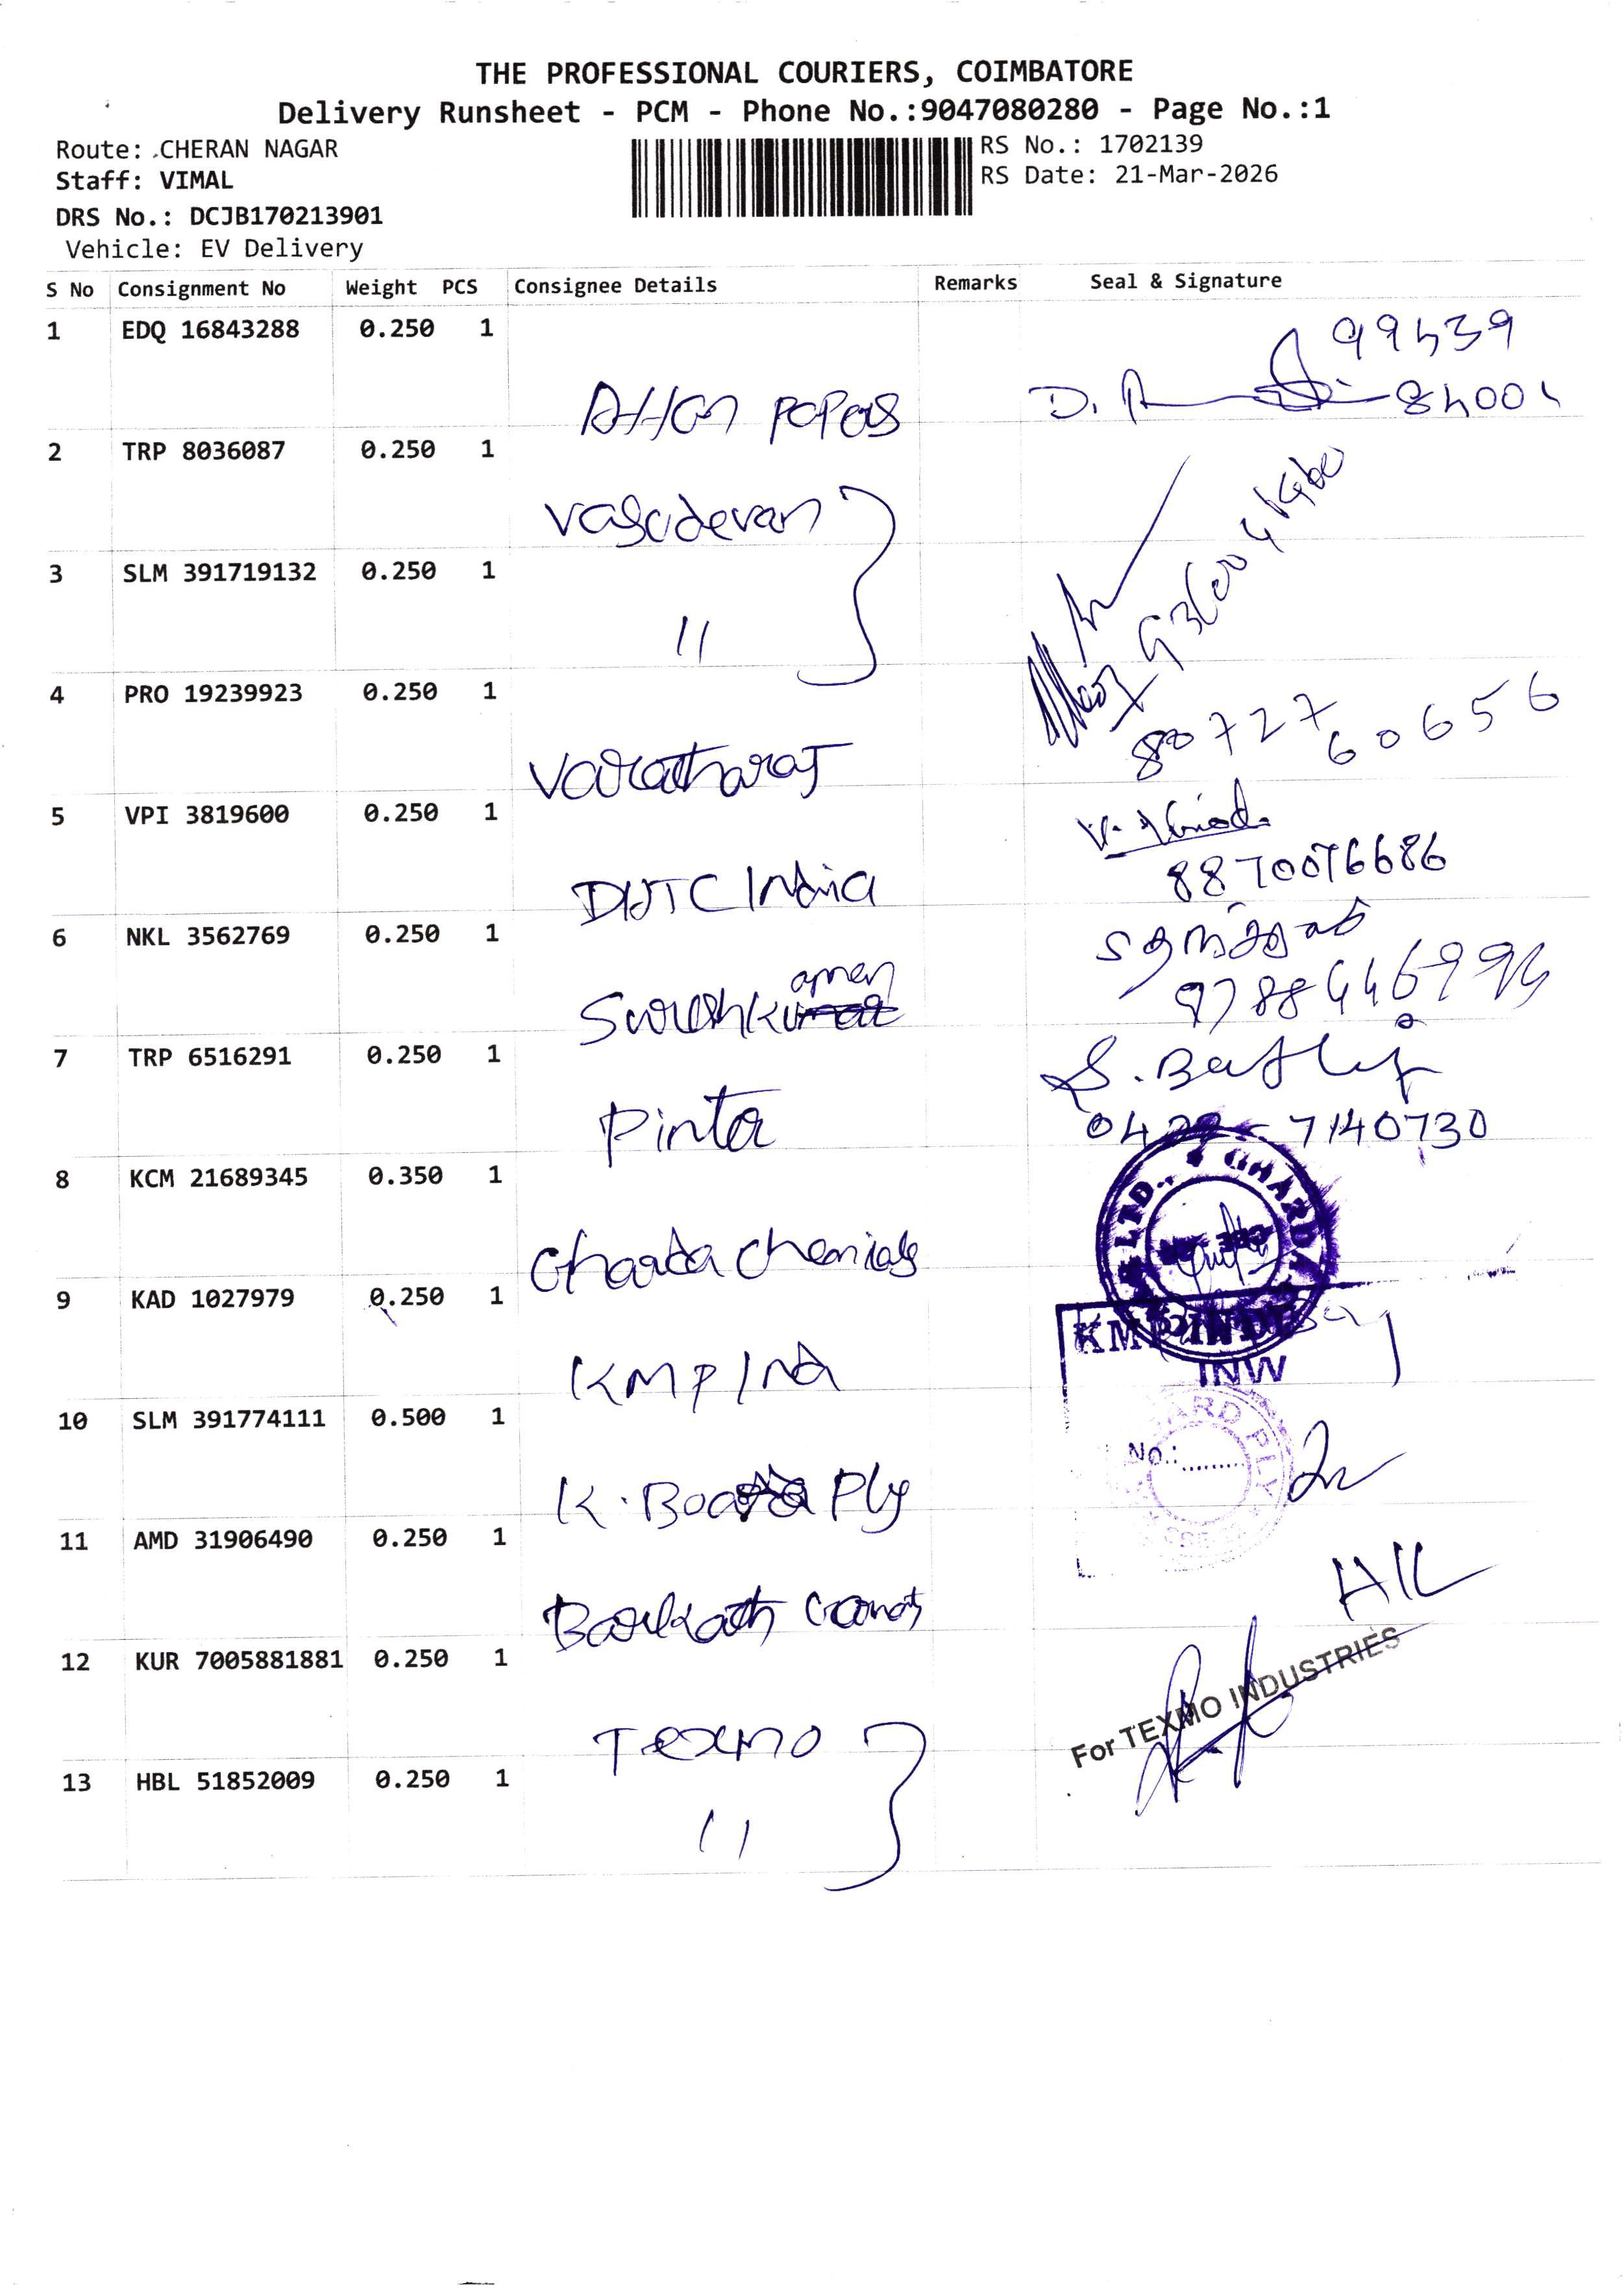 THE PROFESSIONAL COURIERS, COIMBATORE
Delivery Runsheet - PCM - Phone No.:9047080280 - Page No.:1
Route: CHERAN NAGAR
RS No.: 1702139
Staff: VIMAL
RS Date: 21-Mar-2026
DRS No.: DCJB170213901
Vehicle: EV Delivery
S No Consignment No Weight PCS Consignee Details Remarks Seal & Signature
1 EDQ 16843288 0.250 1
99539
papers D. 84001
2 TRP 8036087 0.250 1
Vasudevan
3 SLM 391719132 0.250 1
11
4 PRO 19239923 0.250 1
80727 60656
Varatharaj
5 VPI 3819600 0.250 1
8870076686
India
6 NKL 3562769 0.250 1
Sureshk
7 TRP 6516291 0.250 1
S.
Pinta
7140730
8 KCM 21689345 0.350 1
LTD., GHARDA
Gharda Chemicals
9 KAD 1027979 0.250 1
KMP IND
INW
KMP Ind
10 SLM 391774111 0.500 1
No.:
K. Ply
11 AMD 31906490 0.250 1
HK
Barkath
12 KUR 7005881881 0.250 1
For TEXMO INDUSTRIES
Texmo
13 HBL 51852009 0.250 1
11